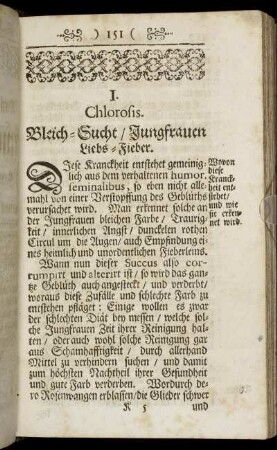 ) 151 (
I.
Chlorosis.
Bleich-Sucht / Jungfrauen
Liebs-Fieber.
DIese Kranckheit entstehet gemeinig-
lich aus dem verhaltenen humor.
seminalibus, so eben nicht alle-
mahl von einer Verstopffung des Geblüths
verursachet wird. Man erkennet solche an
der Jungfrauen bleichen Farbe / Traurig-
keit / innerlichen Angst / dunckelen rothen
Circul um die Augen / auch Empfindung ei-
nes heimlich und unordentlichen Fieberleins.
Wovon
diese
Kranck-
heit ent-
stehet /
und wie
sie erken-
net wird.
Wann nun dieser Succus also cor-
rumpirt und alterirt ist / so wird das gan-
tze Geblüth auch angesteckt / und verderbt /
woraus diese Zufälle und schlechte Farb zu
entstehen pfläget; Einige wollen es zwar
der schlechten Diät bey messen / welche sol-
che Jungfrauen Zeit ihrer Reinigung hal-
ten / oder auch wohl solche Reinigung gar
aus Schamhafftigkeit / durch allerhand
Mittel zu verhindern suchen / und damit
zum höchsten Nachtheil ihrer Gesundheit
und gute Farb verderben. Wordurch de-
ro Rosenwangen erblassen / die Glieder schwer
K 5 und